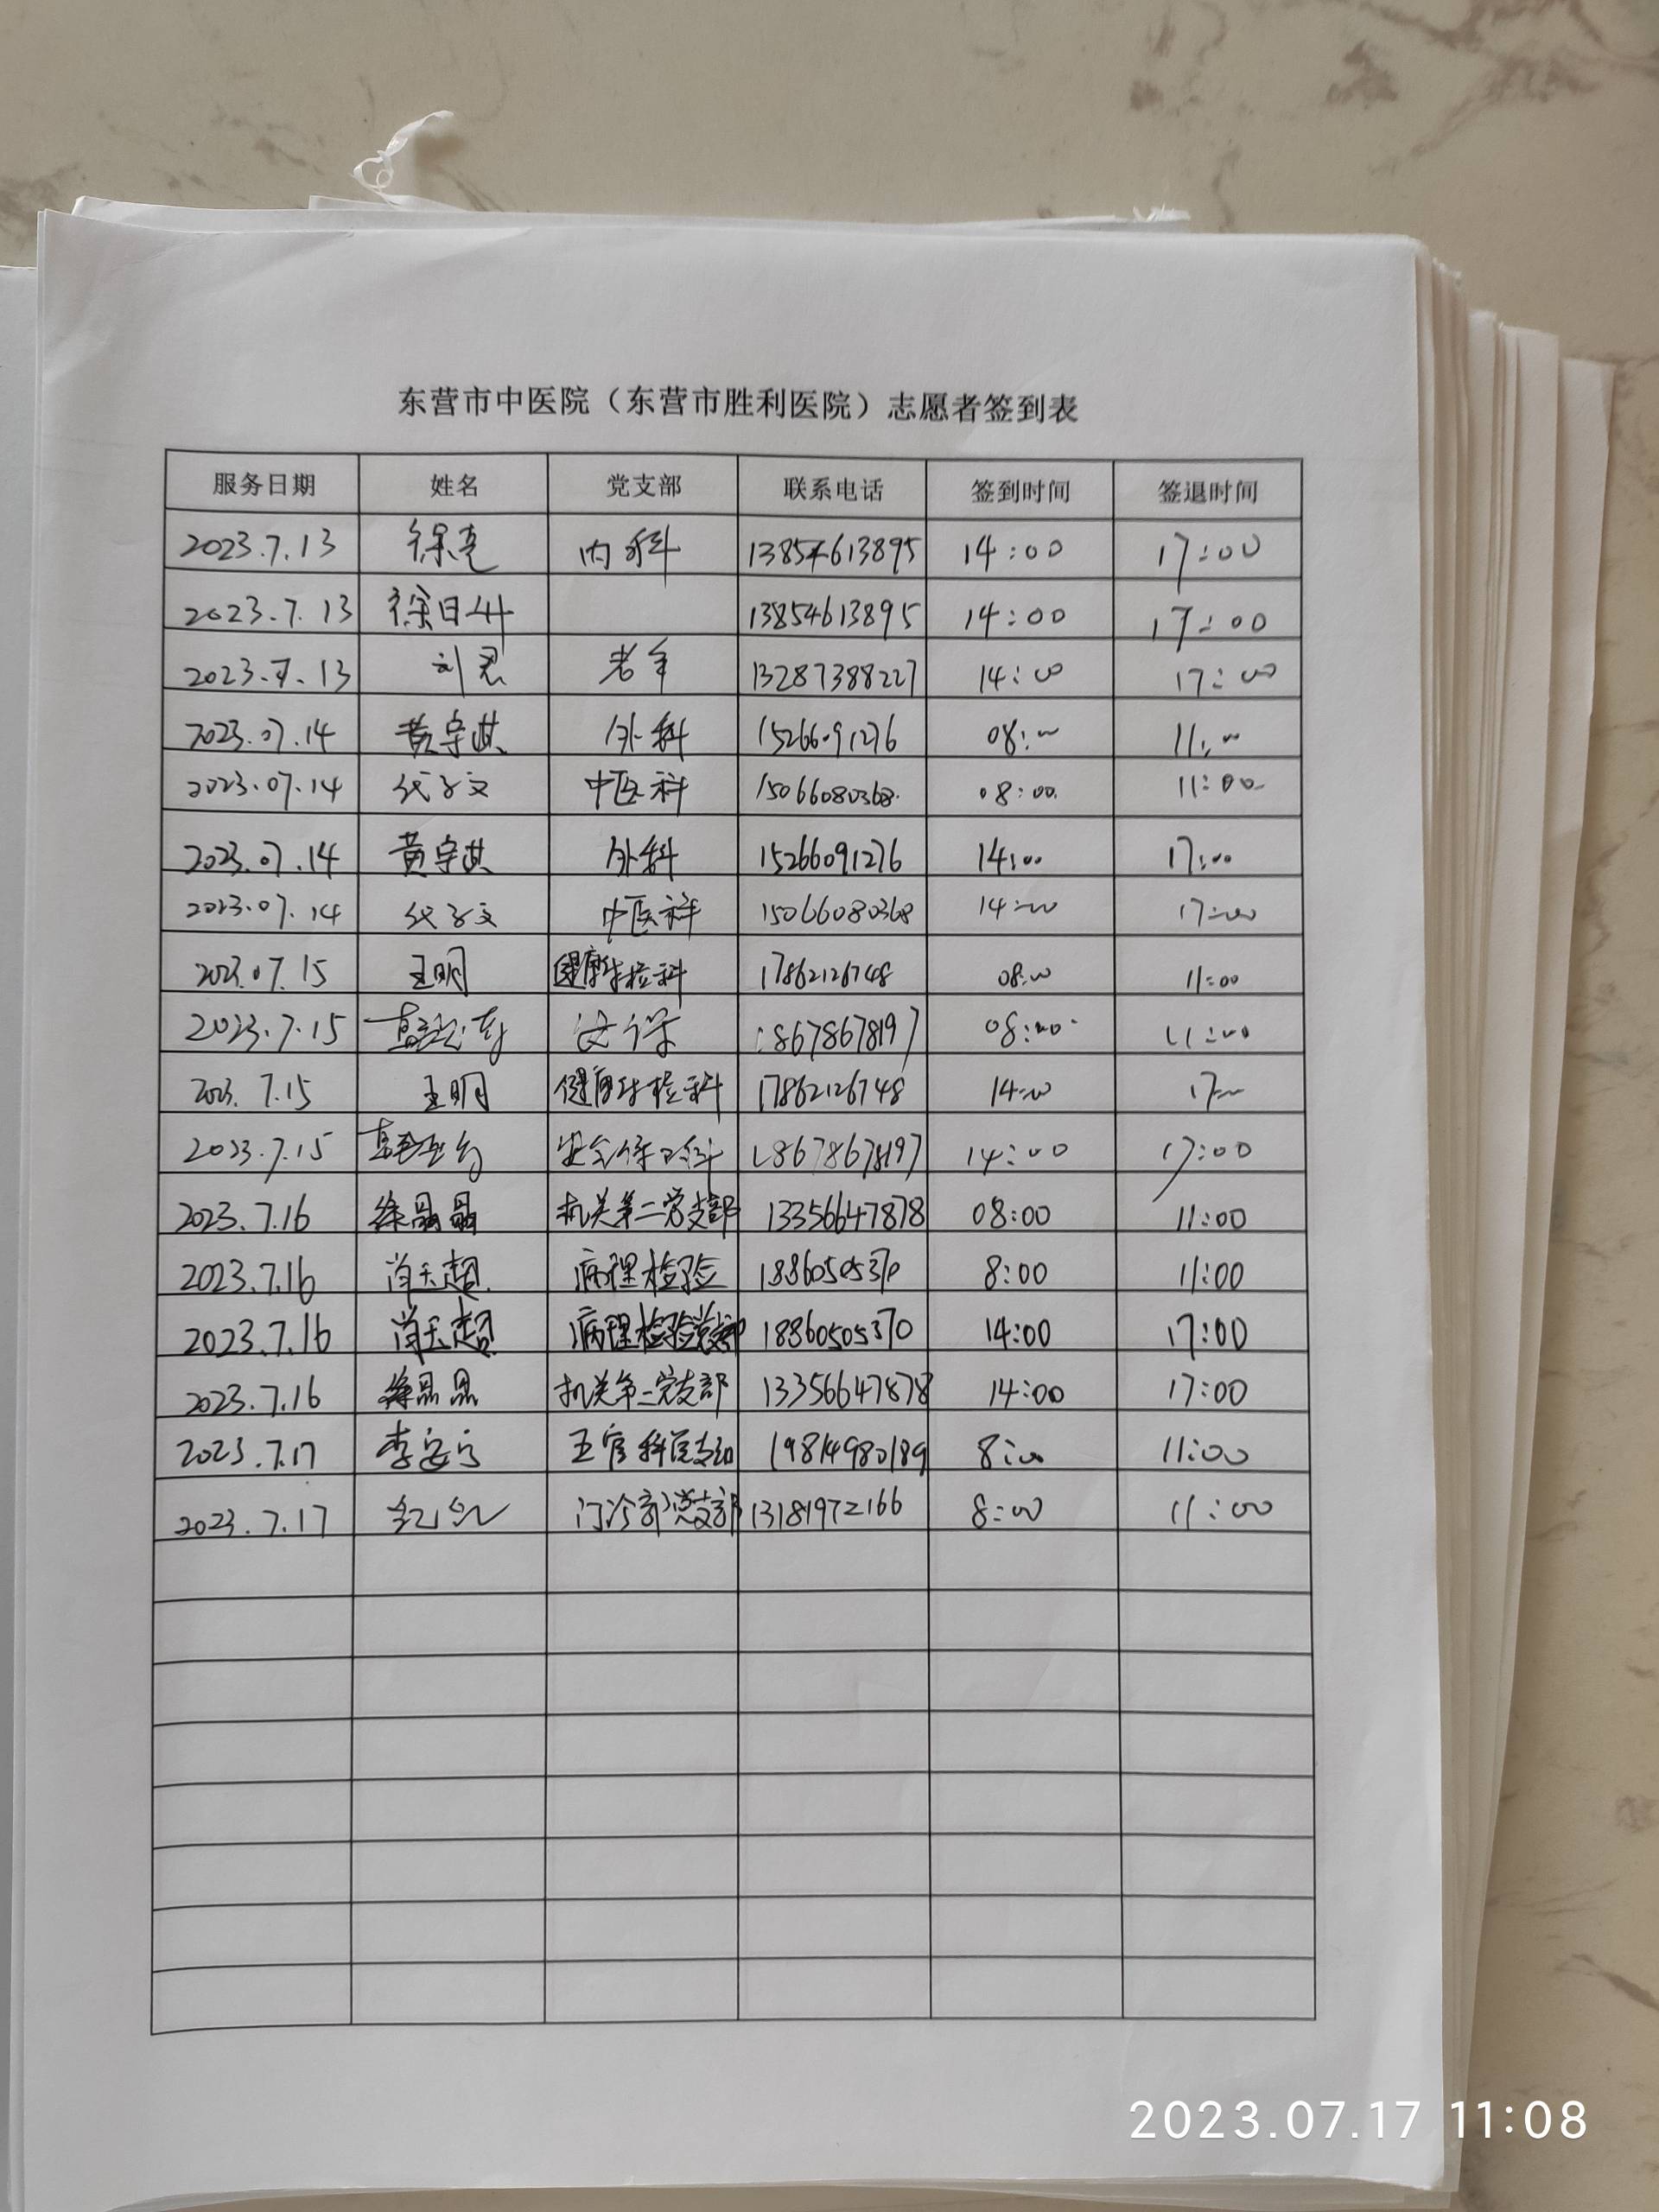 东营市中医院（东营市胜利医院）志愿者签到表
服务日期 姓名 党支部 联系电话 签到时间 签退时间
2023.7.13 徐亮 内科 13854613895 14:00 17:00
2023.7.13 徐日升 13854613895 14:00 17:00
2023.7.13 刘君 老年 13287388227 14:00 17:00
2023.07.14 黄宇琪 外科 15266091276 08:00 11:00
2023.07.14 代子文 中医科 15066080368 08:00 11:00
2023.07.14 黄宇琪 外科 15266091276 14:00 17:00
2023.07.14 代子文 中医科 15066080368 14:00 17:00
2023.07.15 王明 健康体检科 17862126748 08:00 11:00
2023.7.15 安保 18678678197 08:00 11:00
2023.7.15 王明 健康体检科 17862126748 14:00 17:00
2023.7.15 安全保卫科 18678678197 14:00 17:00
2023.7.16 徐晶晶 机关第二党支部 13356647878 08:00 11:00
2023.7.16 肖玉超 病理检验 18860505370 8:00 11:00
2023.7.16 肖玉超 病理检验党支部 18860505370 14:00 17:00
2023.7.16 徐晶晶 机关第二党支部 13356647878 14:00 17:00
2023.7.17 李安宁 五官科党支部 19814980189 8:00 11:00
2023.7.17 门诊部党支部 13181972166 8:00 11:00
2023.07.17 11:08